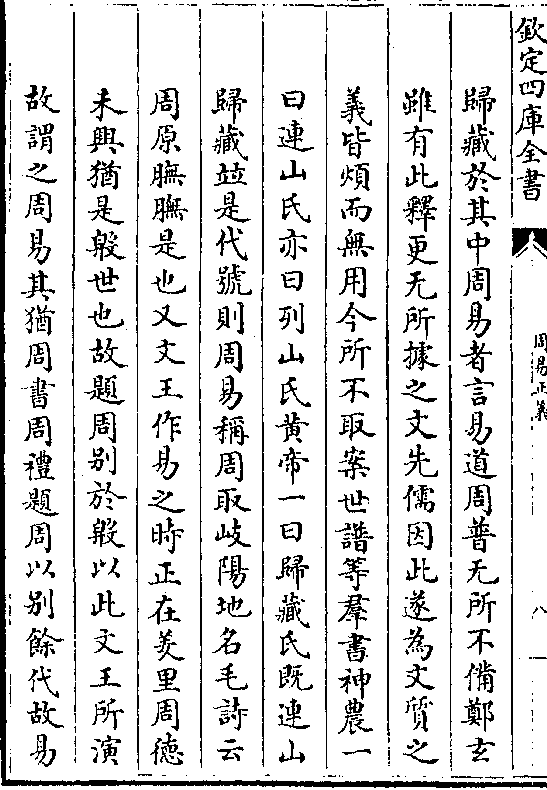 欽定四庫全書
周易正義
八
歸藏於其中周易者言易道周普无所不備鄭玄
雖有此釋更无所據之文先儒因此遂為文質之
義皆煩而無用今所不取案世譜等羣書神農一
曰連山氏亦曰列山氏黄帝一曰歸藏氏既連山
歸藏並是代號則周易稱周取岐陽地名毛詩云
周原膴膴是也又文王作易之時正在羑里周德
未興猶是殷世也故題周别於殷以此文王所演
故謂之周易其猶周書周禮題周以别餘代故易